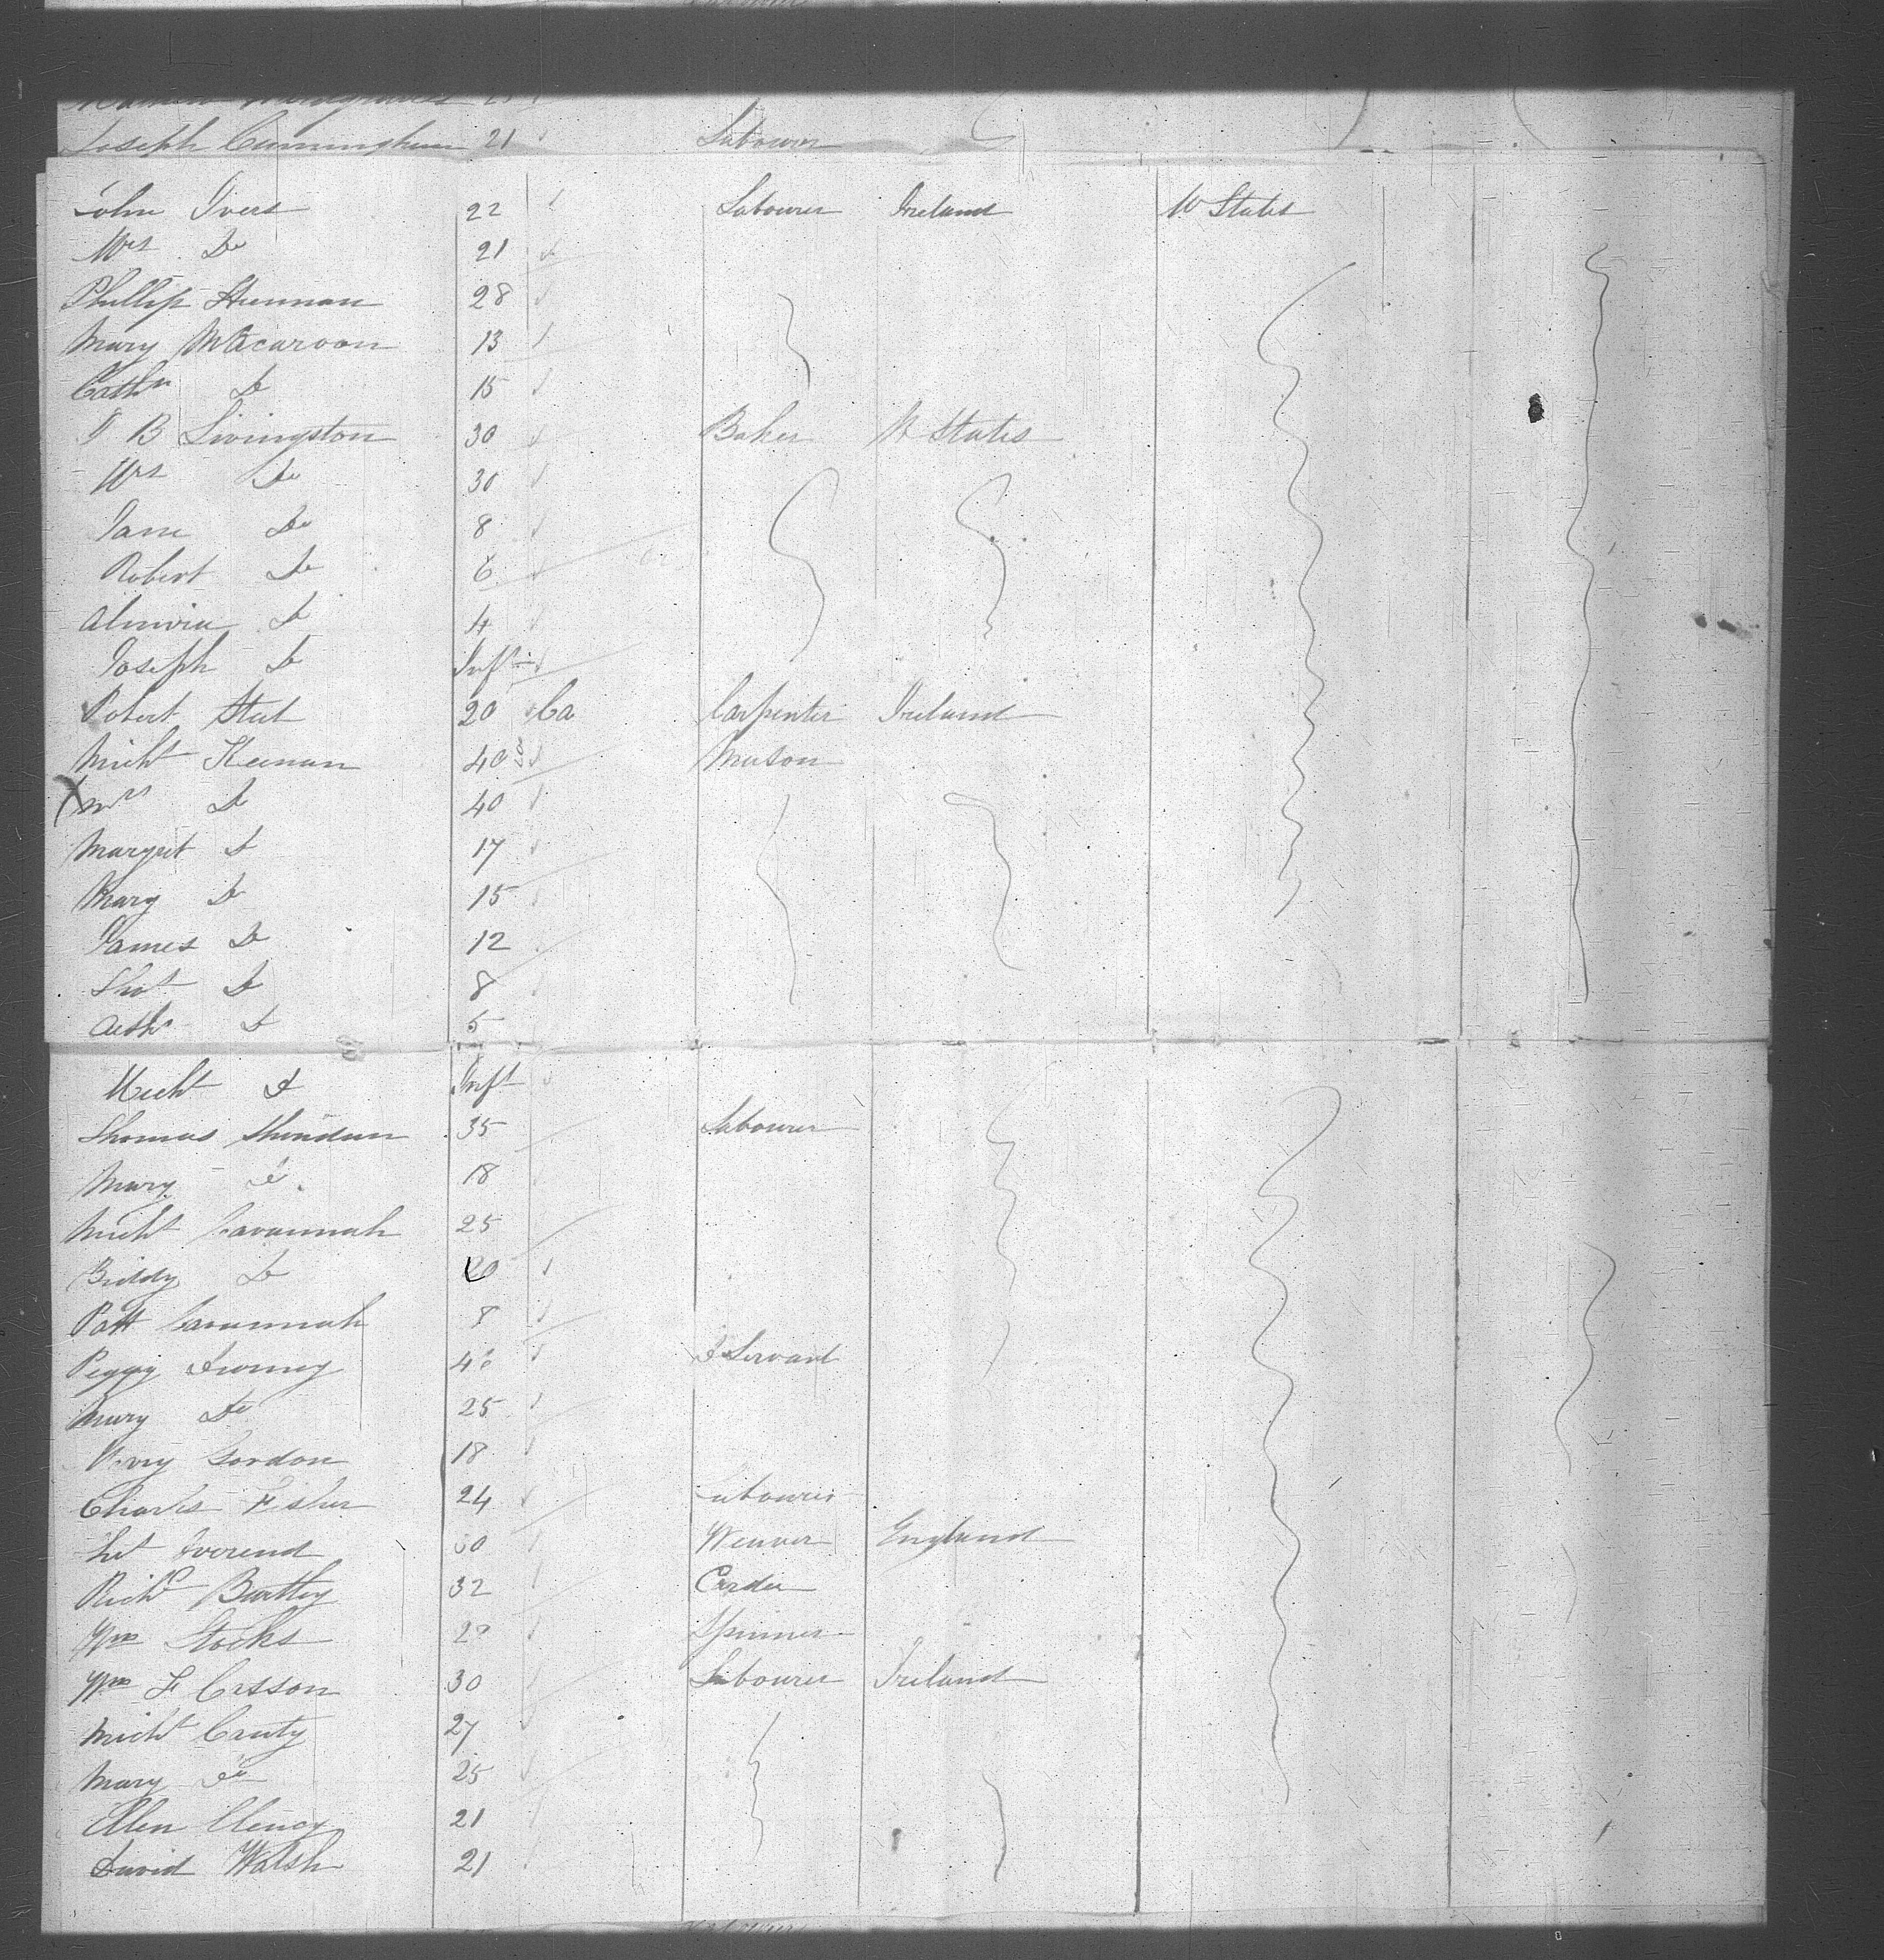 Joseph Cunningham 21 Labourer
John Ivers 22 Labourer Ireland U States
Mrs Do 21
Phillip Heenan 28
Mary 13
Cathn Do 15
B Livingston 30 Baker U States
Mrs Do 30
Jane Do 8
Robert Do 6
Almira Do 4
Joseph Do Inft
Robert Steel 20 Ca Carpenter Ireland
Michl Keenan 40 Mason
Mrs Do 40
Margret Do 17
Mary Do 15
James Do 12
Do 8
Cath Do 5
Michl Do Inft
Thomas Sheridan 35 Labourer
Mary Do 18
Michl Cavannah 25
Biddy Do 20
Patt Cavannah 8
Peggy 40 Servant
Mary Do 25
Gordon 18
Charles Fisher 24 Labourer
Weaver England
Richd Bentley 32 Carder
Wm Stocks Spinner
Wm F Casson 30 Labourer Ireland
Michl Canty 27
Mary Do 25
Ellen Clency 21
David Walsh 21